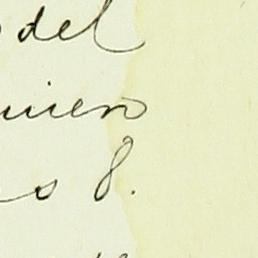 del
uien
s 8.